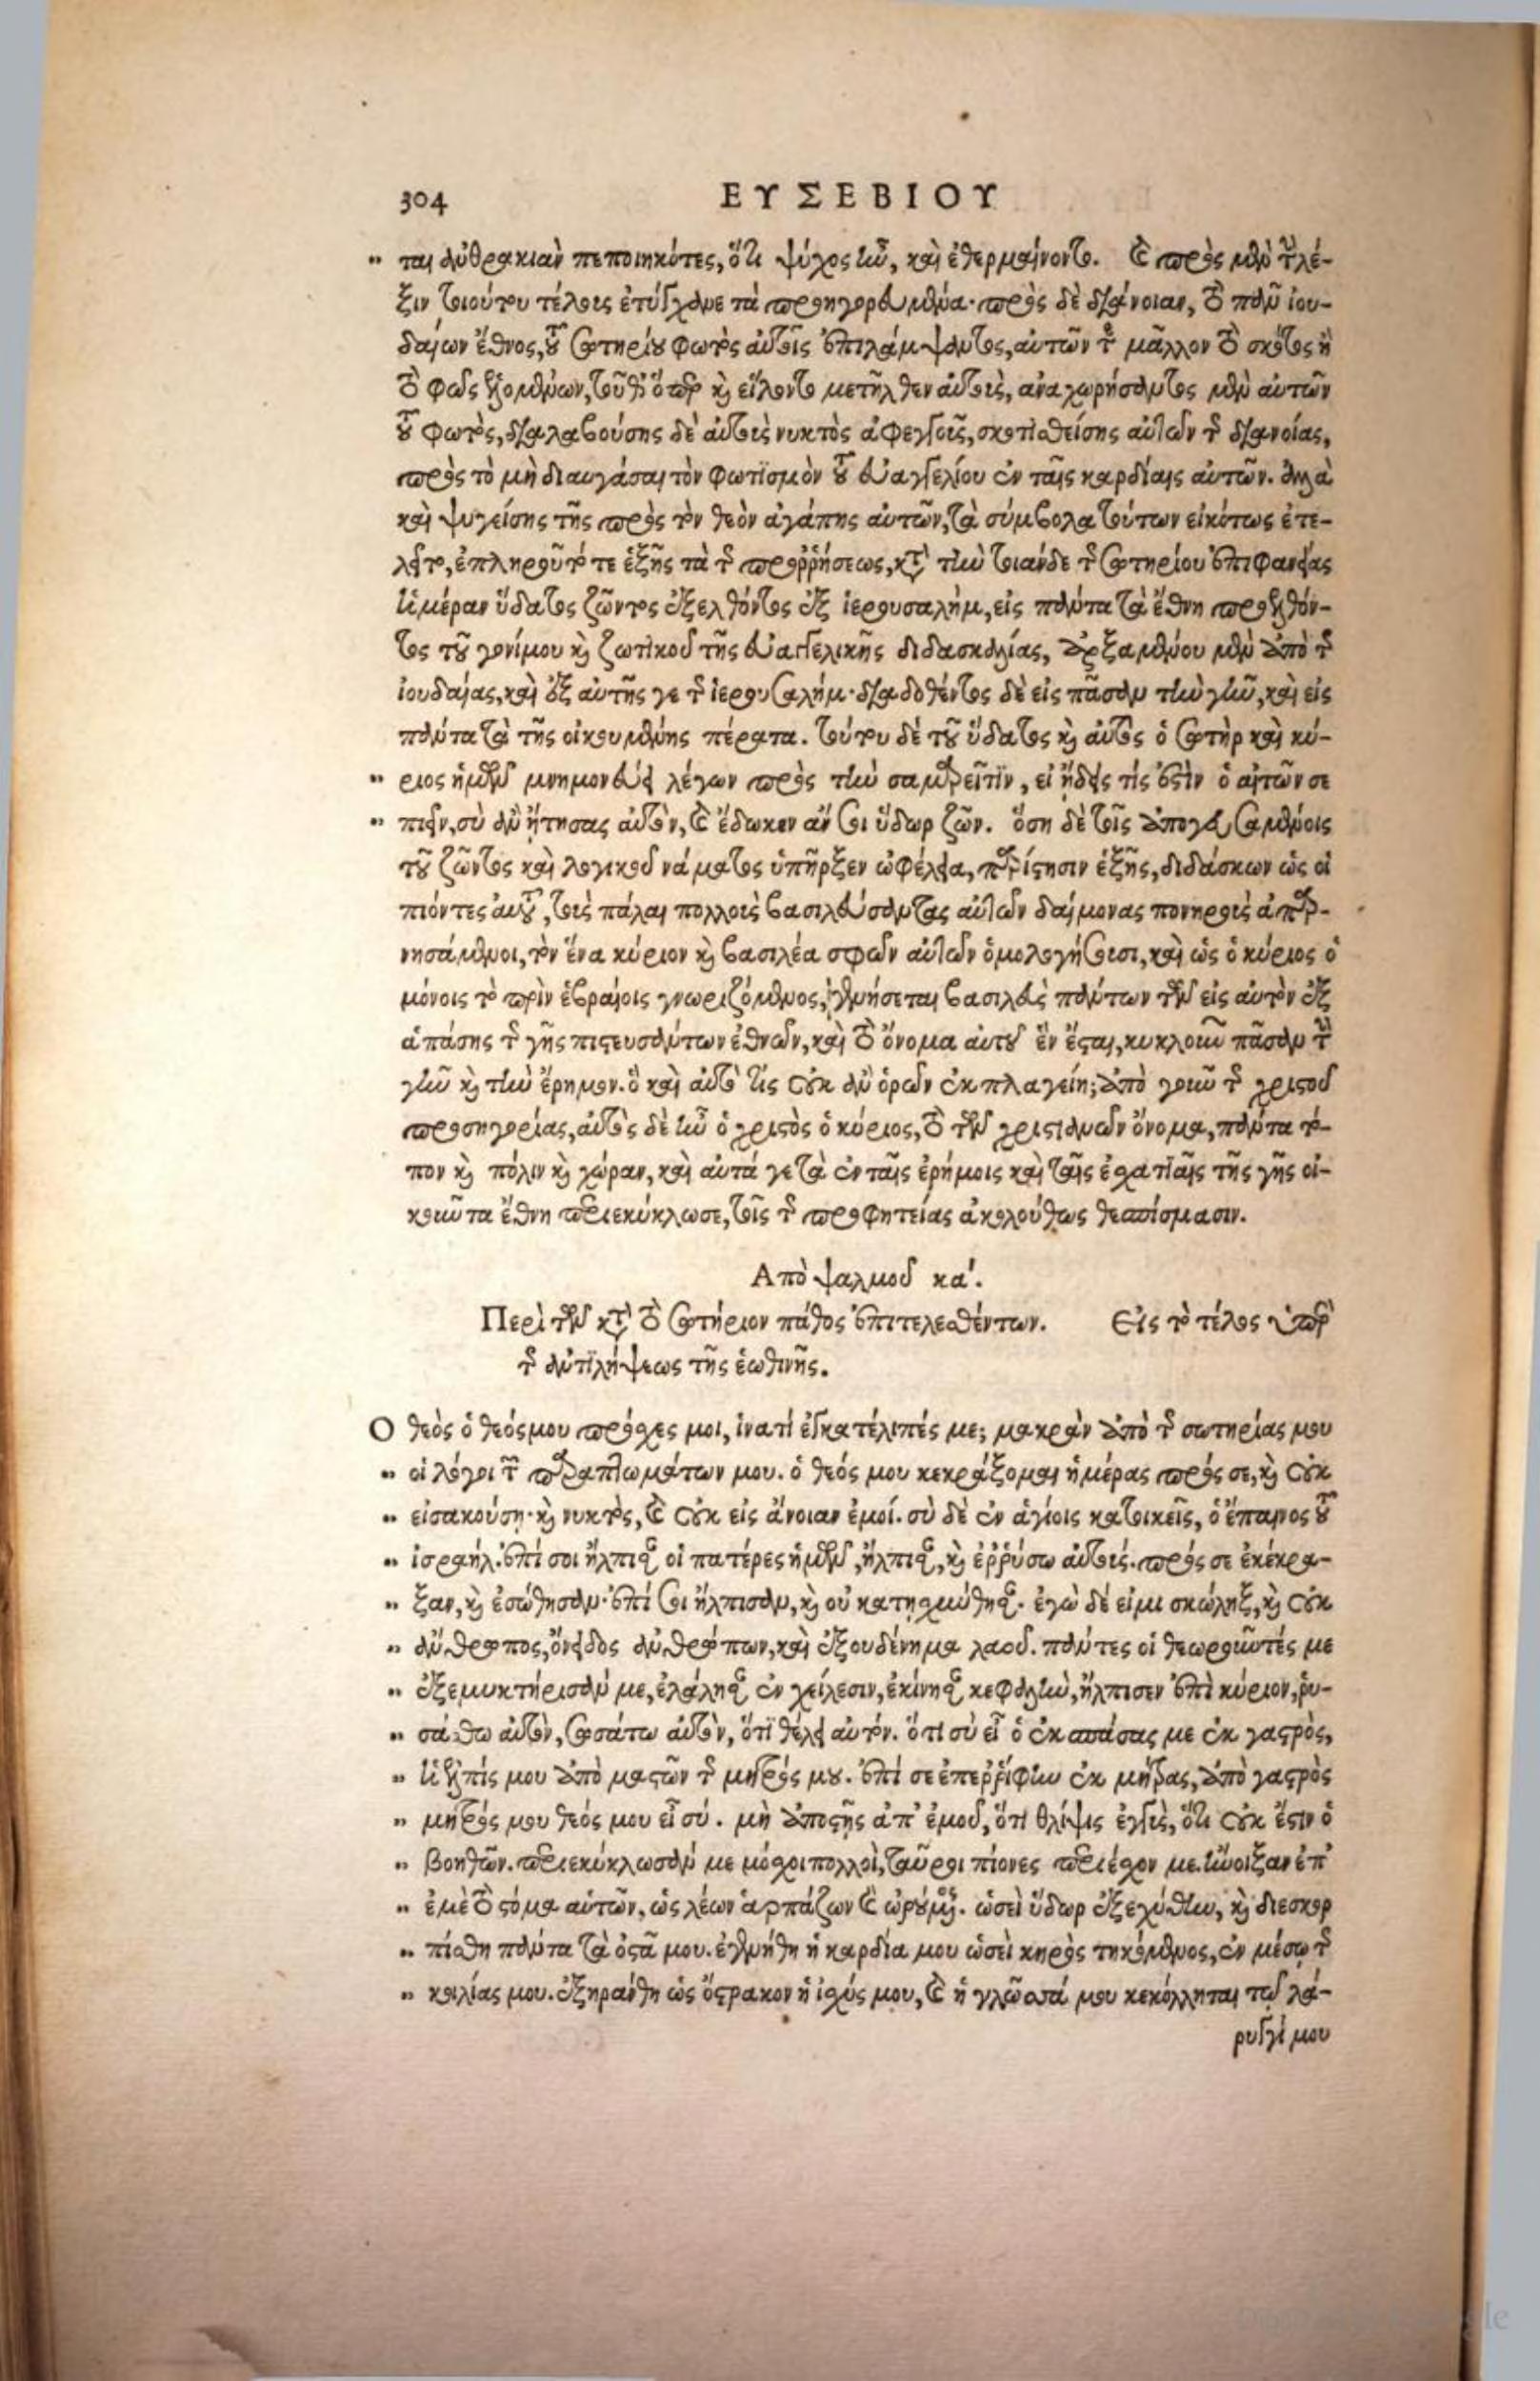 304 ΕΥΣΕΒΙΟΥ
" ται ἀνθρακιὰν πεποιηκότες, ὅτι ψύχος ἦν, καὶ ἐθερμαίνοντο. καὶ πρὸς μὲν τὴν λέ-
ξιν τοιούτου τέλους ἐτύγχανε τὰ προηγορευμένα· πρὸς δὲ διάνοιαν, τὸ πᾶν ἰου-
δαίων ἔθνος, τοῦ σωτηρίου φωτὸς αὐτοῖς ἐπιλάμψαντος, αὐτῶν τε μᾶλλον τὸ σκότος ἢ
τὸ φῶς ἑλομένων, τοῦθ' ὅπερ καὶ εἵλοντο μετῆλθεν αὐτοὺς, ἀναχωρήσαντος μὲν αὐτῶν
τοῦ φωτὸς, διαλαβούσης δὲ αὐτοὺς νυκτὸς ἀφεγγοῦς, σκοτισθείσης αὐτῶν τῆς διανοίας,
πρὸς τὸ μὴ διαυγάσαι τὸν φωτισμὸν τοῦ εὐαγγελίου ἐν ταῖς καρδίαις αὐτῶν. ἀλλὰ
καὶ ψυγείσης τῆς πρὸς τὸν θεὸν ἀγάπης αὐτῶν, τὰ σύμβολα τούτων εἰκότως ἐτε-
λεῖτο, ἐπληροῦτό τε ἑξῆς τὰ τῆς προρρήσεως, κατὰ τὴν τοιάνδε τῆς σωτηρίου ἐπιφανείας
ἡμέραν ὕδατος ζῶντος ἐξελθόντος ἐξ ἱερουσαλὴμ, εἰς πάντα τὰ ἔθνη προελθόν-
τος τοῦ γονίμου καὶ ζωτικοῦ τῆς εὐαγγελικῆς διδασκαλίας, ἀρξαμένου μὲν ἀπὸ τῆς
ἰουδαίας, καὶ ἐξ αὐτῆς γε τῆς ἱερουσαλήμ· διαδοθέντος δὲ εἰς πᾶσαν τὴν γῆν, καὶ εἰς
πάντα τὰ τῆς οἰκουμένης πέρατα. τούτου δὲ τοῦ ὕδατος καὶ αὐτὸς ὁ σωτὴρ καὶ κύ-
" ριος ἡμῶν μνημονεύει λέγων πρὸς τὴν σαμαρεῖτιν, εἰ ᾔδεις τίς ἐστὶν ὁ αἰτῶν σε
" πιεῖν, σὺ ἂν ᾔτησας αὐτὸν, καὶ ἔδωκεν ἄν σοι ὕδωρ ζῶν. ὅση δὲ τοῖς ἀπογευσαμένοις
τοῦ ζῶντος καὶ λογικοῦ νάματος ὑπῆρξεν ὠφέλεια, παρίστησιν ἑξῆς, διδάσκων ὡς οἱ
πιόντες αὐτοῦ, τοὺς πάλαι πολλοὺς βασιλεύσαντας αὐτῶν δαίμονας πονηροὺς ἀπαρ-
νησάμενοι, τὸν ἕνα κύριον καὶ βασιλέα σφῶν αὐτῶν ὁμολογήσουσι, καὶ ὡς ὁ κύριος ὁ
μόνοις τὸ πρὶν ἑβραίοις γνωριζόμενος, γενήσεται βασιλεὺς πάντων τῶν εἰς αὐτὸν ἐξ
ἁπάσης τῆς γῆς πιστευσάντων ἐθνῶν, καὶ τὸ ὄνομα αὐτοῦ ἓν ἔσται, κυκλοῦν πᾶσαν τὴν
γῆν καὶ τὴν ἔρημον. ὃ καὶ αὐτὸ τίς οὐκ ἂν ὁρῶν ἐκπλαγείη; ἀπὸ γοῦν τῆς χριστοῦ
προσηγορίας, αὐτὸς δὲ ἦν ὁ χριστὸς ὁ κύριος, τὸ τῶν χριστιανῶν ὄνομα, πάντα τό-
πον καὶ πόλιν καὶ χώραν, καὶ αὐτά γε τὰ ἐν ταῖς ἐρήμοις καὶ ταῖς ἐσχατιαῖς τῆς γῆς οἰ-
κοῦντα ἔθνη περιεκύκλωσε, τοῖς τῆς προφητείας ἀκολούθως θεσπίσμασιν.
Απὸ ψαλμοῦ κα'.
Περὶ τῶν κατὰ τὸ σωτήριον πάθος ἐπιτελεσθέντων. Εἰς τὸ τέλος ὑπὲρ
τῆς ἀντιλήψεως τῆς ἑωθινῆς.
Ο θεὸς ὁ θεός μου πρόσχες μοι, ἱνατί ἐγκατέλιπές με; μακρὰν ἀπὸ τῆς σωτηρίας μου
" οἱ λόγοι τῶν παραπτωμάτων μου. ὁ θεός μου κεκράξομαι ἡμέρας πρός σε, καὶ οὐκ
" εἰσακούσῃ· καὶ νυκτὸς, καὶ οὐκ εἰς ἄνοιαν ἐμοί. σὺ δὲ ἐν ἁγίοις κατοικεῖς, ὁ ἔπαινος τοῦ
" ἰσραήλ. ἐπί σοι ἤλπισαν οἱ πατέρες ἡμῶν, ἤλπισαν, καὶ ἐρρύσω αὐτούς. πρός σε ἐκέκρα-
" ξαν, καὶ ἐσώθησαν· ἐπί σοι ἤλπισαν, καὶ οὐ κατῃσχύνθησαν. ἐγὼ δέ εἰμι σκώληξ, καὶ οὐκ
" ἄνθρωπος, ὄνειδος ἀνθρώπων, καὶ ἐξουδένημα λαοῦ. πάντες οἱ θεωροῦντές με
" ἐξεμυκτήρισάν με, ἐλάλησαν ἐν χείλεσιν, ἐκίνησαν κεφαλὴν, ἤλπισεν ἐπὶ κύριον, ῥυ-
" σάσθω αὐτὸν, σωσάτω αὐτὸν, ὅτι θέλει αὐτόν. ὅτι σὺ εἶ ὁ ἐκσπάσας με ἐκ γαστρὸς,
" ἡ ἐλπίς μου ἀπὸ μαστῶν τῆς μητρός μου. ἐπί σε ἐπερρίφην ἐκ μήτρας, ἀπὸ γαστρὸς
" μητρός μου θεός μου εἶ σύ. μὴ ἀποστῇς ἀπ' ἐμοῦ, ὅτι θλίψις ἐγγὺς, ὅτι οὐκ ἔστιν ὁ
" βοηθῶν. περιεκύκλωσάν με μόσχοι πολλοὶ, ταῦροι πίονες περιέσχον με. ἤνοιξαν ἐπ'
" ἐμὲ τὸ στόμα αὑτῶν, ὡς λέων ἁρπάζων καὶ ὠρυόμενος. ὡσεὶ ὕδωρ ἐξεχύθην, καὶ διεσκορ
" πίσθη πάντα τὰ ὀστᾶ μου. ἐγενήθη ἡ καρδία μου ὡσεὶ κηρὸς τηκόμενος, ἐν μέσῳ τῆς
" κοιλίας μου. ἐξηράνθη ὡς ὄστρακον ἡ ἰσχύς μου, καὶ ἡ γλῶσσά μου κεκόλληται τῷ λά-
ρυγγί μου